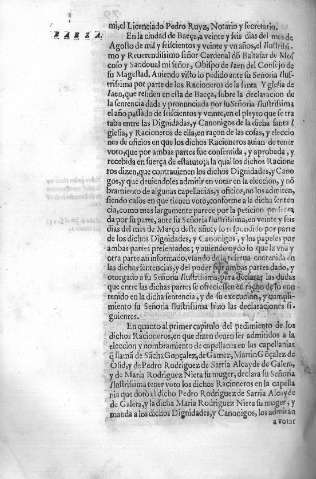 mi, el Licenciado Pedro Ruyz, Notario y secretario.
BAEZA.
En la ciudad de Baeça, a veynte y seis dias del mes de
Agosto de mil y seiscientos y veynte y vn años, el Illustrissi
mo y Reuerendissimo señor Cardenal dõ Baltasar de Mos
coso y Sandoual mi señor, Obispo de Iaen del Consejo de
su Magestad. Auiendo visto lo pedido ante su Señoria Illus
trissima por parte de los Racioneros de la santa Yglesia de
Iaen, que residen en esta de Baeça, sobre la declaracion de
la sentencia dada y pronunciada por su Señoria Illustrissima
el año passado de seiscientos y veynte, en el pleyto que se tra
taba entre las Dignidades, y Canonigos de la dicha santa Y
glesia, y Racioneros de ella, en raçon de las cosas, y eleccio
nes de oficios en que los dichos Racioneros auian de tener
voto, que por ambas partes fue consentida, y aprobada, y
recebida en fuerça de estatuto, a la qual los dichos Racione
ros dizen, que contrauienen los dichos Dignidades, y Cano
nigos, y que diuiendoles admitir en votar en la eleccion, y nõ
bramiento de algunas capellanias, y oficios, no los admiten,
siendo casos en que tienen voto, conforme a la dicha senten
cia, como mas largamente parece por la peticion presenta
da por su parte, ante su Señoria Illustrissima, en veynte y seis
dias del mes de Março deste año, y lo respondido por parte
de los dichos Dignidades, y Canonigos, y los papeles por
ambas partes presentados; y auiendo oydo lo que la vna y
otra parte an informado, vsando de la reserua contenida en
las dichas sentencias, y del poder por ambas partes dado, y
otorgado a su Señoria Illustrissima, para declarar las dudas
que entre las dichas partes se ofreciessen en raçon de lo con
tenido en la dicha sentencia, y de su execucion, y cumpli
miento su Señoria Illustrissima hizo las declaraciones si
guientes.
En quanto al primer capitulo del pedimento de los
dichos Racioneros, en que dizen deuen ser admitidos a la
eleccion y nombramiento de capellanes en las capellanias
q̃ llamã de Sãcha Gonçalez, de Gamez, Martin Gõçalez de
Olid, y de Pedro Rodriguez de Sarria Alcayde de Galera,
y de Maria Rodriguez Nieta su muger, declara su Señoria
Illustrissima tener voto los dichos Racioneros en la capella
nia que dotarõ el dicho Pedro Rodriguez de Sarria Alcayde
de Galera, y la dicha Maria Rodriguez Nieta su muger, y
manda a los dichos Dignidades, y Canonigos, los admitan
a votar